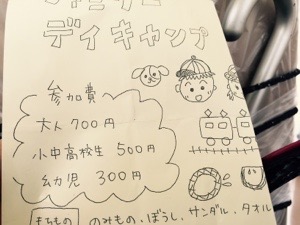 デイキャンプ
参加費
大人 700円
小中高校生 500円
幼児 300円
もちもの のみもの、ぼうし、サンダル、タオル